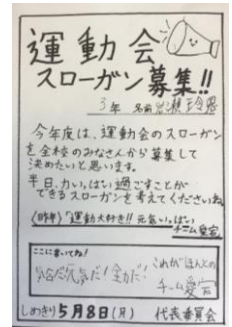 運動会
スローガン募集!!
3年 名前 岩瀬
今年度は、運動会のスローガン
を全校のみなさんから募集して
決めたいと思います。
半日、力いっぱい過ごすことが
できるスローガンを考えてくださいね。
〈昨年〉「運動大好き!! 元気いっぱい
チーム愛宕」
ここに書いてね!
元気だ!全力だ!
これがほんとの
チーム愛宕
しめきり 5月8日(月) 代表委員会